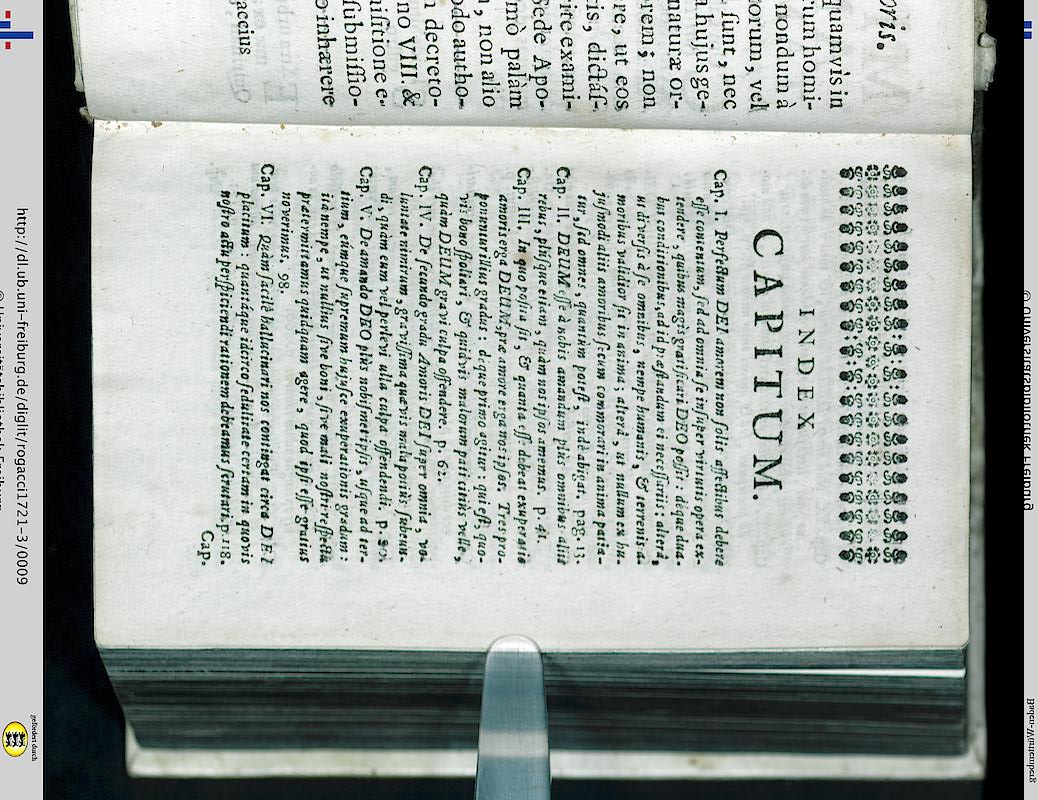 oris.
quamvis in
cum homi-
nondum à
orum, vel
sunt, nec
a hujus ge-
naturæ or-
rem; non
re, ut eos
is, dictás-
ite exami-
Sede Apo-
mò palàm
, non alio
odo autho-
n decreto-
no VIII. &
uisitione e-
submissio-
oinhærere
gaccius
INDEX
CAPITUM.
Cap. I. Perfectum DEI amorem non solis affectibus debere
esse contentum, sed ad omnia se insuper virtutis opera ex-
tendere, quibus magis gratificari DEO possit: deque dua-
bus conditionibus, ad id præstandum ei necessariis: alterâ,
ut diversis à se omnibus, nempe humanis, & terrenis a-
moribus validior sit in anima; alterâ, ut nullum ex hu-
jusmodi aliis amoribus secum commorari in anima patia-
tur, sed omnes, quantum potest, inde abigat, pag. 13.
Cap. II. DEUM esse à nobis amandum plus omnibus aliis
rebus, plusque etiam, quam nos ipsos amemus. p. 41.
Cap. III. In quo posita sit, & quanta esse debeat exuperatio
amoris erga DEUM, præ amore erga nos ipsos. Tres pro-
ponuntur illius gradus: deque primo agitur: qui est, quo-
vis bono spoliari, & quidvis malorum pati citiùs velle,
quàm DEUM gravi culpa offendere, p. 62.
Cap. IV. De secundo gradu Amoris DEI super omnia, vo-
luntate nimirum, gravissima quævis mala potiùs subeun-
di, quàm eum vel perlevi ulla culpa offendendi. p. 90.
Cap. V. De amando DEO plus nobismetipsis, usque ad ter-
tium, eúmque supremum hujusce exuperationis gradum:
ità nempe, ut nullius sive boni, sive mali nostri respectu
prætermittamus quidquam agere, quod ipsi esse gratius
noverimus, 98.
Cap. VI. Quàm facilè hallucinari nos contingat circa DEI
placitum: quantáque idcirco sedulitate ceriam in quovis
nostro actu perficiendi rationem debeamus scrutari, p. 118.
Cap.
http://dl.ub.uni-freiburg.de/diglit/rogacci1721-3/0009
© Universitätsbibliothek Freiburg
gefördert durch